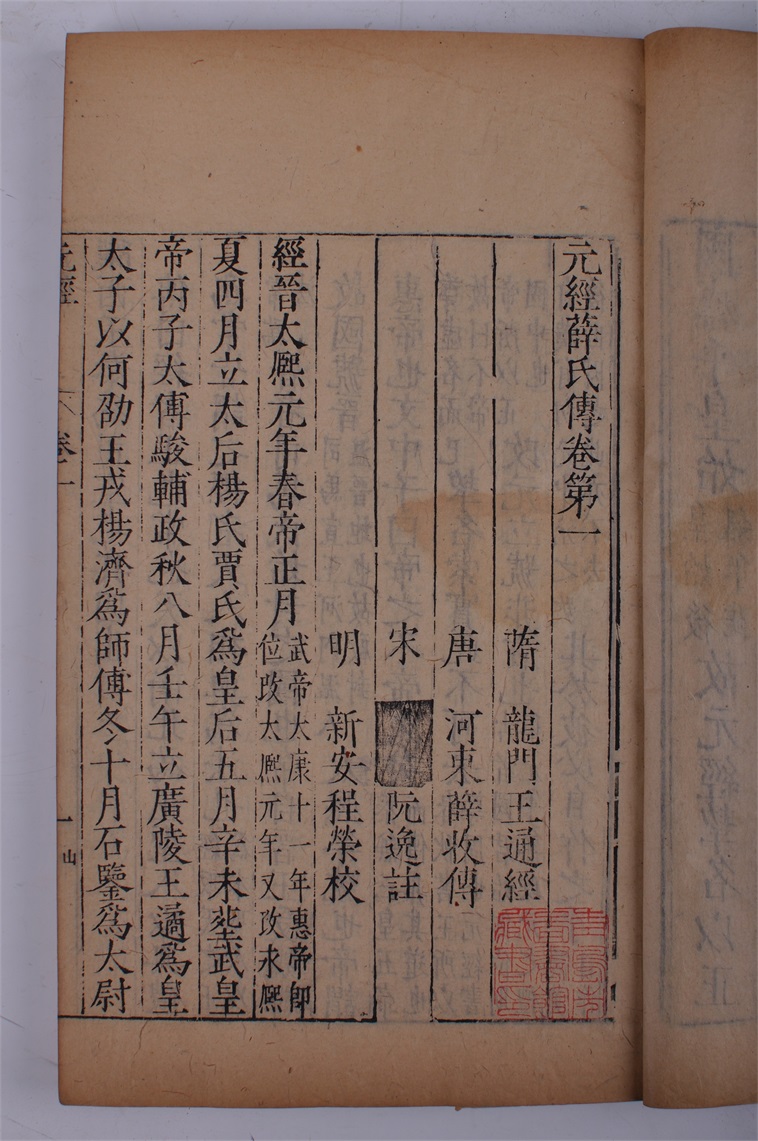 元經薛氏傳卷第一
隋 龍門王通經
唐 河東薛收傳
宋 阮逸註
明 新安程榮校
經晉太熈元年春帝正月武帝太康十一年惠帝即
位改太熈元年又改永熈
夏四月立太后楊氏賈氏爲皇后五月辛未塟武皇
帝丙子太傅駿輔政秋八月壬午立廣陵王遹爲皇
太子以何劭王戎楊濟爲師傅冬十月石鑒爲太尉
元經 卷一 一 山